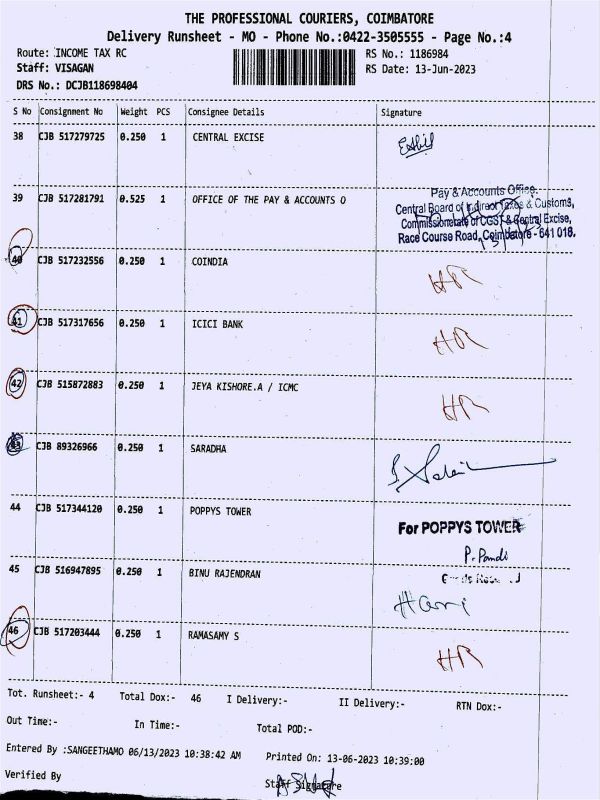 THE PROFESSIONAL COURIERS, COIMBATORE
Delivery Runsheet - MO - Phone No.:0422-3505555 - Page No.:4
Route: INCOME TAX RC RS No.: 1186984
Staff: VISAGAN RS Date: 13-Jun-2023
DRS No.: DCJB118698404
S No Consignment No Weight PCS Consignee Details Signature
38 CJB 517279725 0.250 1 CENTRAL EXCISE
39 CJB 517281791 0.525 1 OFFICE OF THE PAY & ACCOUNTS O
Pay & Accounts Office.
Central Board of Indirect Taxes & Customs,
Commissionerate of CGST & Central Excise,
Race Course Road, Coimbatore - 641 018.
40 CJB 517232556 0.250 1 COINDIA HR
41 CJB 517317656 0.250 1 ICICI BANK HR
42 CJB 515872883 0.250 1 JEYA KISHORE.A / ICMC HR
43 CJB 89326966 0.250 1 SARADHA
44 CJB 517344120 0.250 1 POPPYS TOWER
For POPPYS TOWER
P. Pandi
45 CJB 516947895 0.250 1 BINU RAJENDRAN
Hari
46 CJB 517203444 0.250 1 RAMASAMY S HR
Tot. Runsheet:- 4 Total Dox:- 46 I Delivery:- II Delivery:- RTN Dox:-
Out Time:- In Time:- Total POD:-
Entered By :SANGEETHAMO 06/13/2023 10:38:42 AM Printed On: 13-06-2023 10:39:00
Verified By Staff Signature